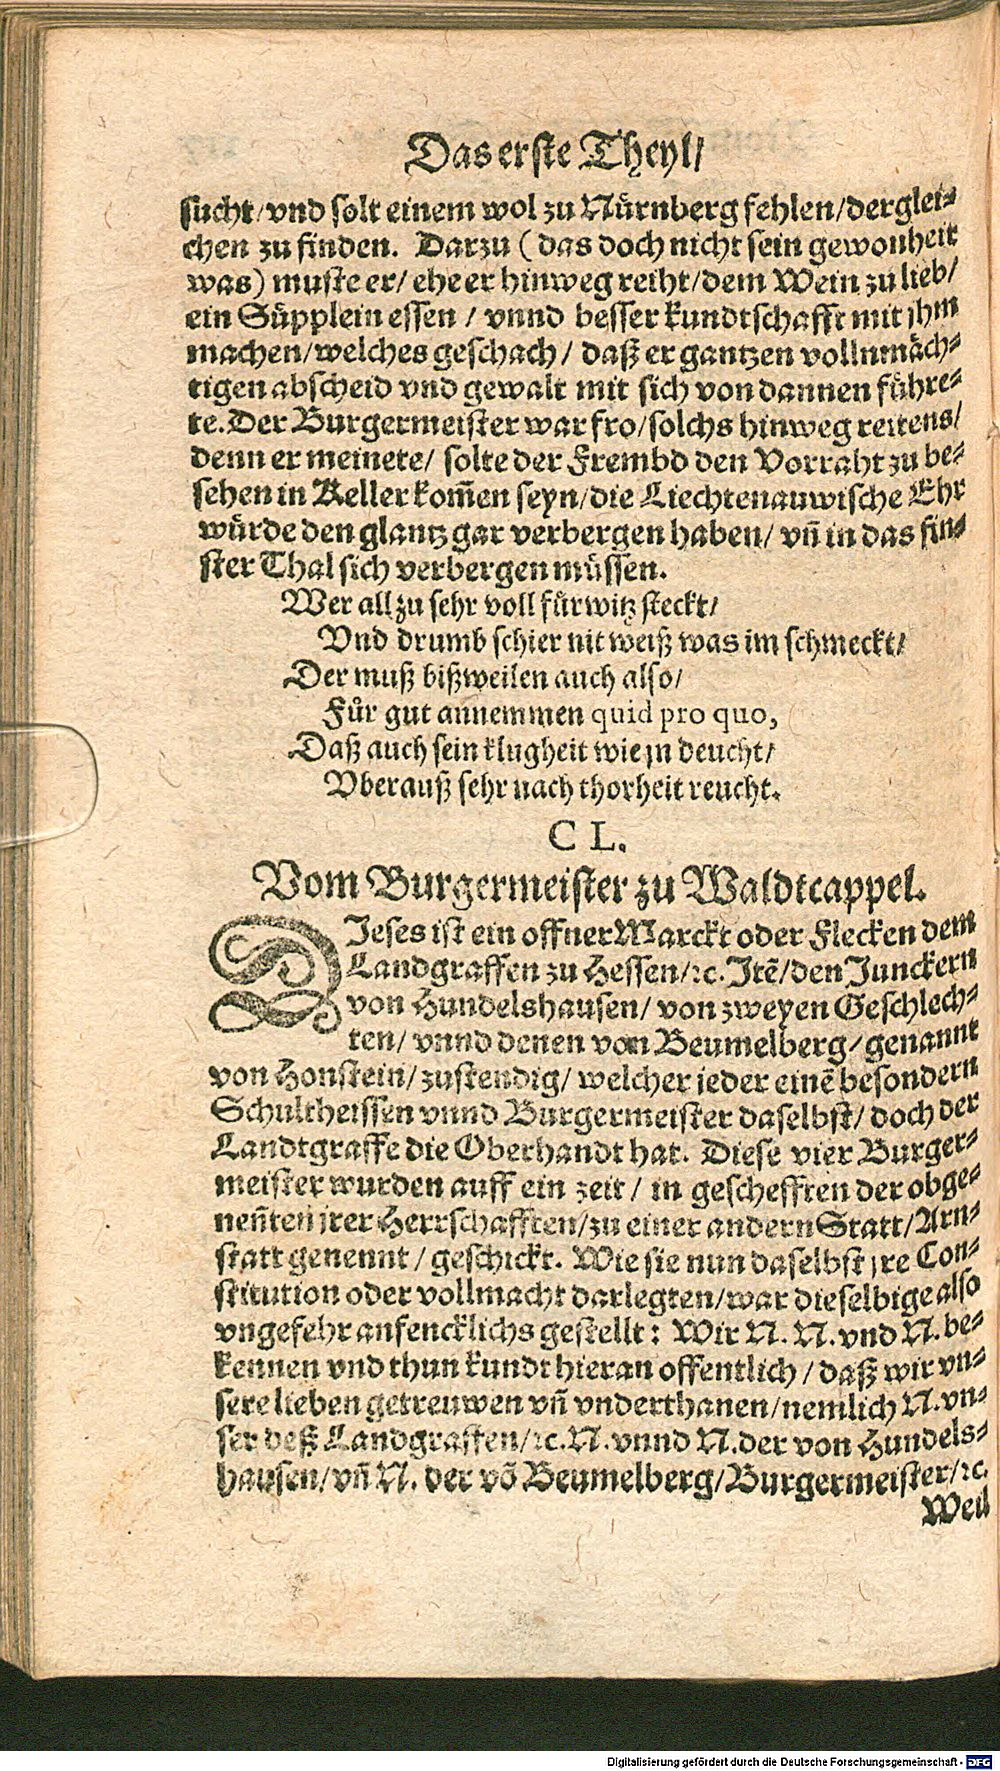 Das erste Theyl/
sucht/vnd solt einem wol zu Nürnberg fehlen/derglei⸗
chen zu finden. Darzu (das doch nicht sein gewonheit
was) muste er/ ehe er hinweg reiht/dem Wein zu lieb/
ein Süpplein essen / vnnd besser kundtschafft mit jhm
machen/welches geschach/ daß er gantzen vollnmäch⸗
tigen abscheid vnd gewalt mit sich von dannen führe⸗
te. Der Burgermeister war fro/solchs hinweg reitens/
denn er meinete/ solte der Frembd den Vorraht zu be⸗
sehen in Keller kom̃en seyn/die Liechtenauwische Ehr
würde den glantz gar verbergen haben/ vñ in das fin⸗
ster Thal sich verbergen müssen.
Wer all zu sehr voll fürwitz steckt/
Vnd drumb schier nit weiß was im schmeckt/
Der muß bißweilen auch also/
Für gut annemmen quid pro quo,
Daß auch sein klugheit wie jn deucht/
Vberauß sehr nach thorheit reucht.
CL.
Vom Burgermeister zu Waldtcappel.
DJeses ist ein offner Marckt oder Flecken dem
Landgraffen zu Hessen/ꝛc. Jtẽ/den Junckern
von Hundelshausen/ von zweyen Geschlech⸗
ten/ vnnd denen von Beumelberg/genannt
von Honstein/zustendig/ welcher jeder einẽ besondern
Schultheissen vnnd Burgermeister daselbst/ doch der
Landtgraffe die Oberhandt hat. Diese vier Burger⸗
meister wurden auff ein zeit/ in geschefften der obge⸗
neñten jrer Herrschafften/zu einer andern Statt/Arn⸗
statt genennt/ geschickt. Wie sie nun daselbst jre Con⸗
stitution oder vollmacht darlegten/war dieselbige also
vngefehr anfencklichs gestellt: Wir N. N. vnd N. be⸗
kennen vnd thun kundt hieran offentlich/ daß wir vn⸗
sere lieben getreuwen vñ vnderthanen/nemlich N. vn⸗
ser deß Landgraffen/ꝛc. N. vnnd N. der von Hundels⸗
hausen/vñ N. der võ Beumelberg/Burgermeister/ꝛc.
Weil
Digitalisierung gefördert durch die Deutsche Forschungsgemeinschaft - DFG